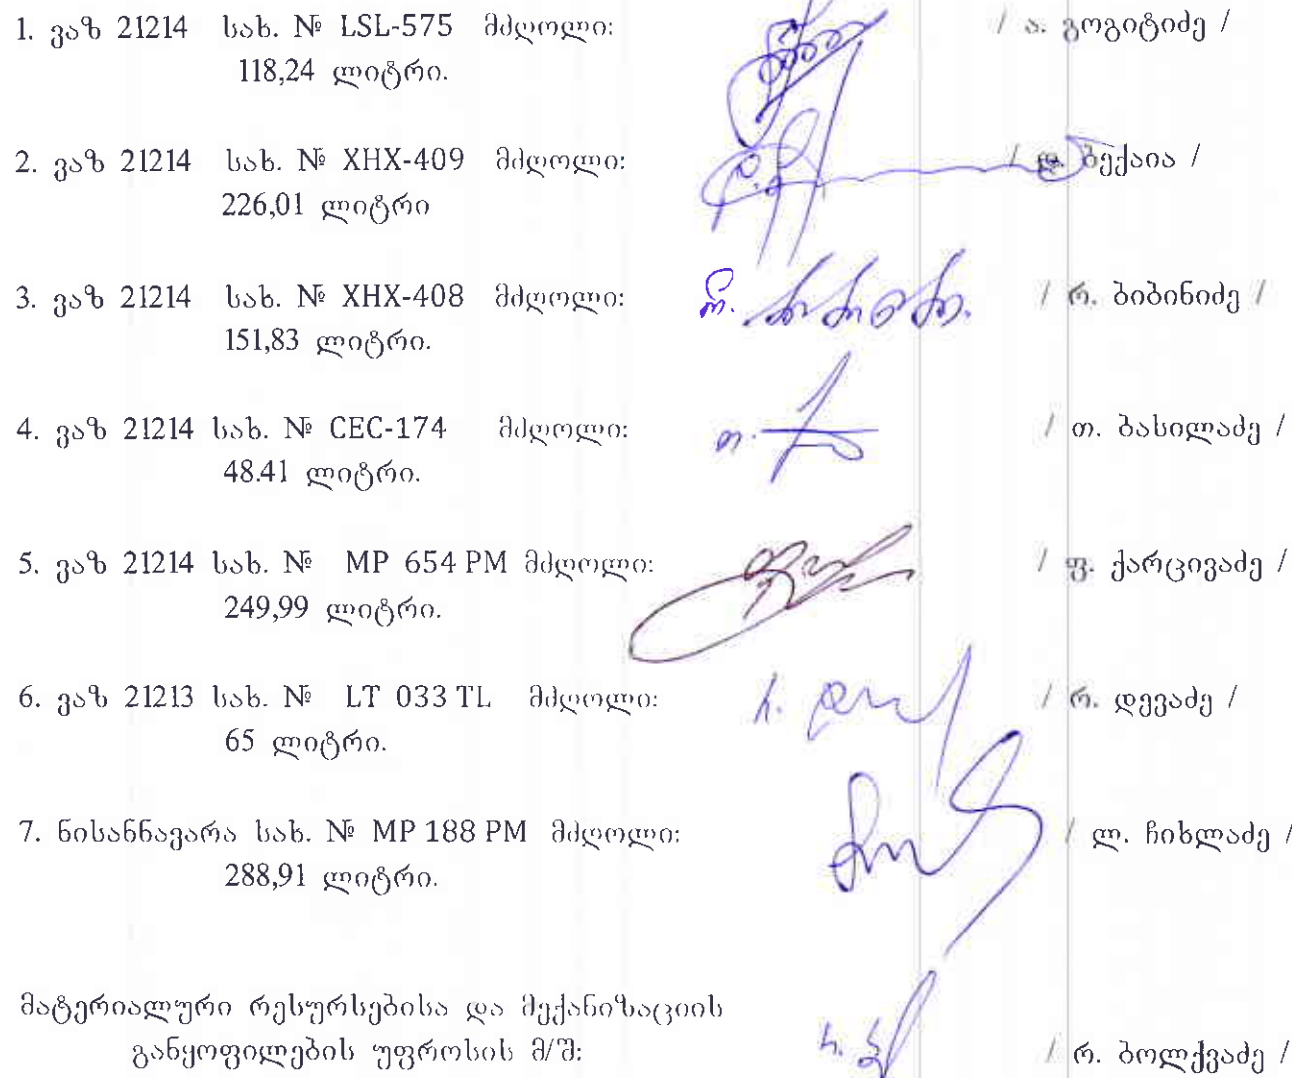 1. ვაზ 21214 სახ. № LSL-575 მძღოლი: / ა. გოგიტიძე /
118,24 ლიტრი.
2. ვაზ 21214 სახ. № XHX-409 მძღოლი: / დ. ბექაია /
226,01 ლიტრი
3. ვაზ 21214 სახ. № XHX-408 მძღოლი: / რ. ბიბინიძე /
151,83 ლიტრი.
4. ვაზ 21214 სახ. № CEC-174 მძღოლი: / თ. ბასილაძე /
48.41 ლიტრი.
5. ვაზ 21214 სახ. № MP 654 PM მძღოლი: / ფ. ქარცივაძე /
249,99 ლიტრი.
6. ვაზ 21213 სახ. № LT 033 TL მძღოლი: / რ. დევაძე /
65 ლიტრი.
7. ნისანნავარა სახ. № MP 188 PM მძღოლი: / ლ. ჩიხლაძე /
288,91 ლიტრი.
მატერიალური რესურსებისა და მექანიზაციის
განყოფილების უფროსის მ/შ: / რ. ბოლქვაძე /